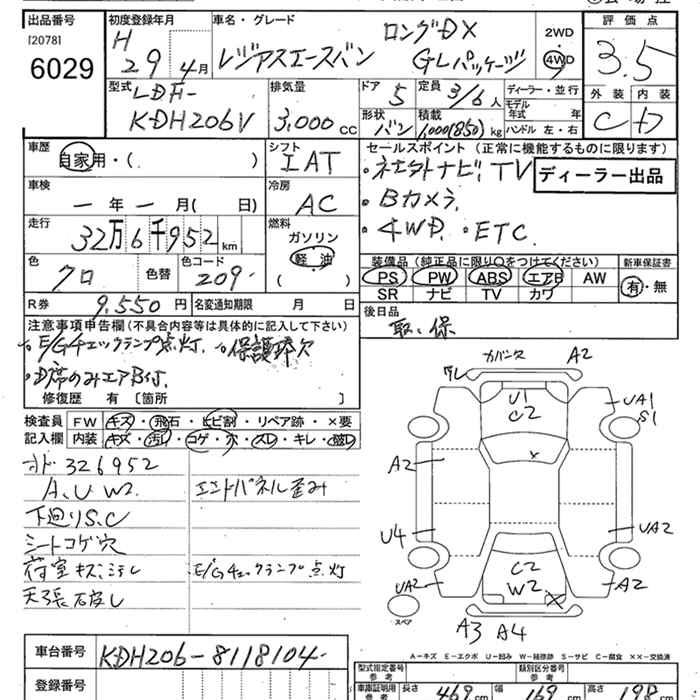 出品番号 初度登録年月 車名・グレード 2WD 評価点
[2078] H ロングDX
6029 29年 4月 レジアスエースバン GLパッケージ 4WD 3.5
型式 排気量 ドア 定員 ディーラー・並行 外装 内装
LDF- 5 3/6人 モデル年式 年
KDH206V 3,000cc 形状 積載 ハンドル 左・右 C D
バン 1,000(850)kg
車歴 シフト セールスポイント(正常に機能するものに限ります)
自家用・( ) IAT ・ナビ、TV ディーラー出品
車検 冷房 ・Bカメラ
一年一月( 日) AC ・4WD ・ETC
走行 燃料
32万6千952km ガソリン
軽油
( )
装備品(純正品に限り○をつけてください) 新車保証書
色 クロ 色替 色コード 209 PS PW ABS エアB AW 有・無
SR ナビ TV カワ
R券 9,550円 名変通知期限 月 日 後日品
取、保
注意事項申告欄(不具合内容等は具体的に記入して下さい)
・E/Gチェックランプ点灯、・保護欠
・D席のみエアB付
修復歴 有 〔箇所 〕
検査員 FW キズ・飛石・ヒビ割・リペア跡・×要
記入欄 内装 キズ・汚れ・コゲ・穴・スレ・キレ・破レ
326952
A、U W2 エンドパネル歪み
下廻りS、C
シートコゲ穴
荷室キズ E/Gチェックランプ点灯
天張
カバンス A2
U1
C2
UA1
S1
A2
U4
UA2
C2
W2
UA2
A2
スペア
A3 A4
A-キズ E-エクボ U-凹み W-補修跡 S-サビ C-腐食 ××-交換済
車台番号 KDH206-8118104
登録番号
型式指定番号 参考 類別区分番号 参考
車庫証明用 参考 長さ 469cm 幅 169cm 高さ 198cm